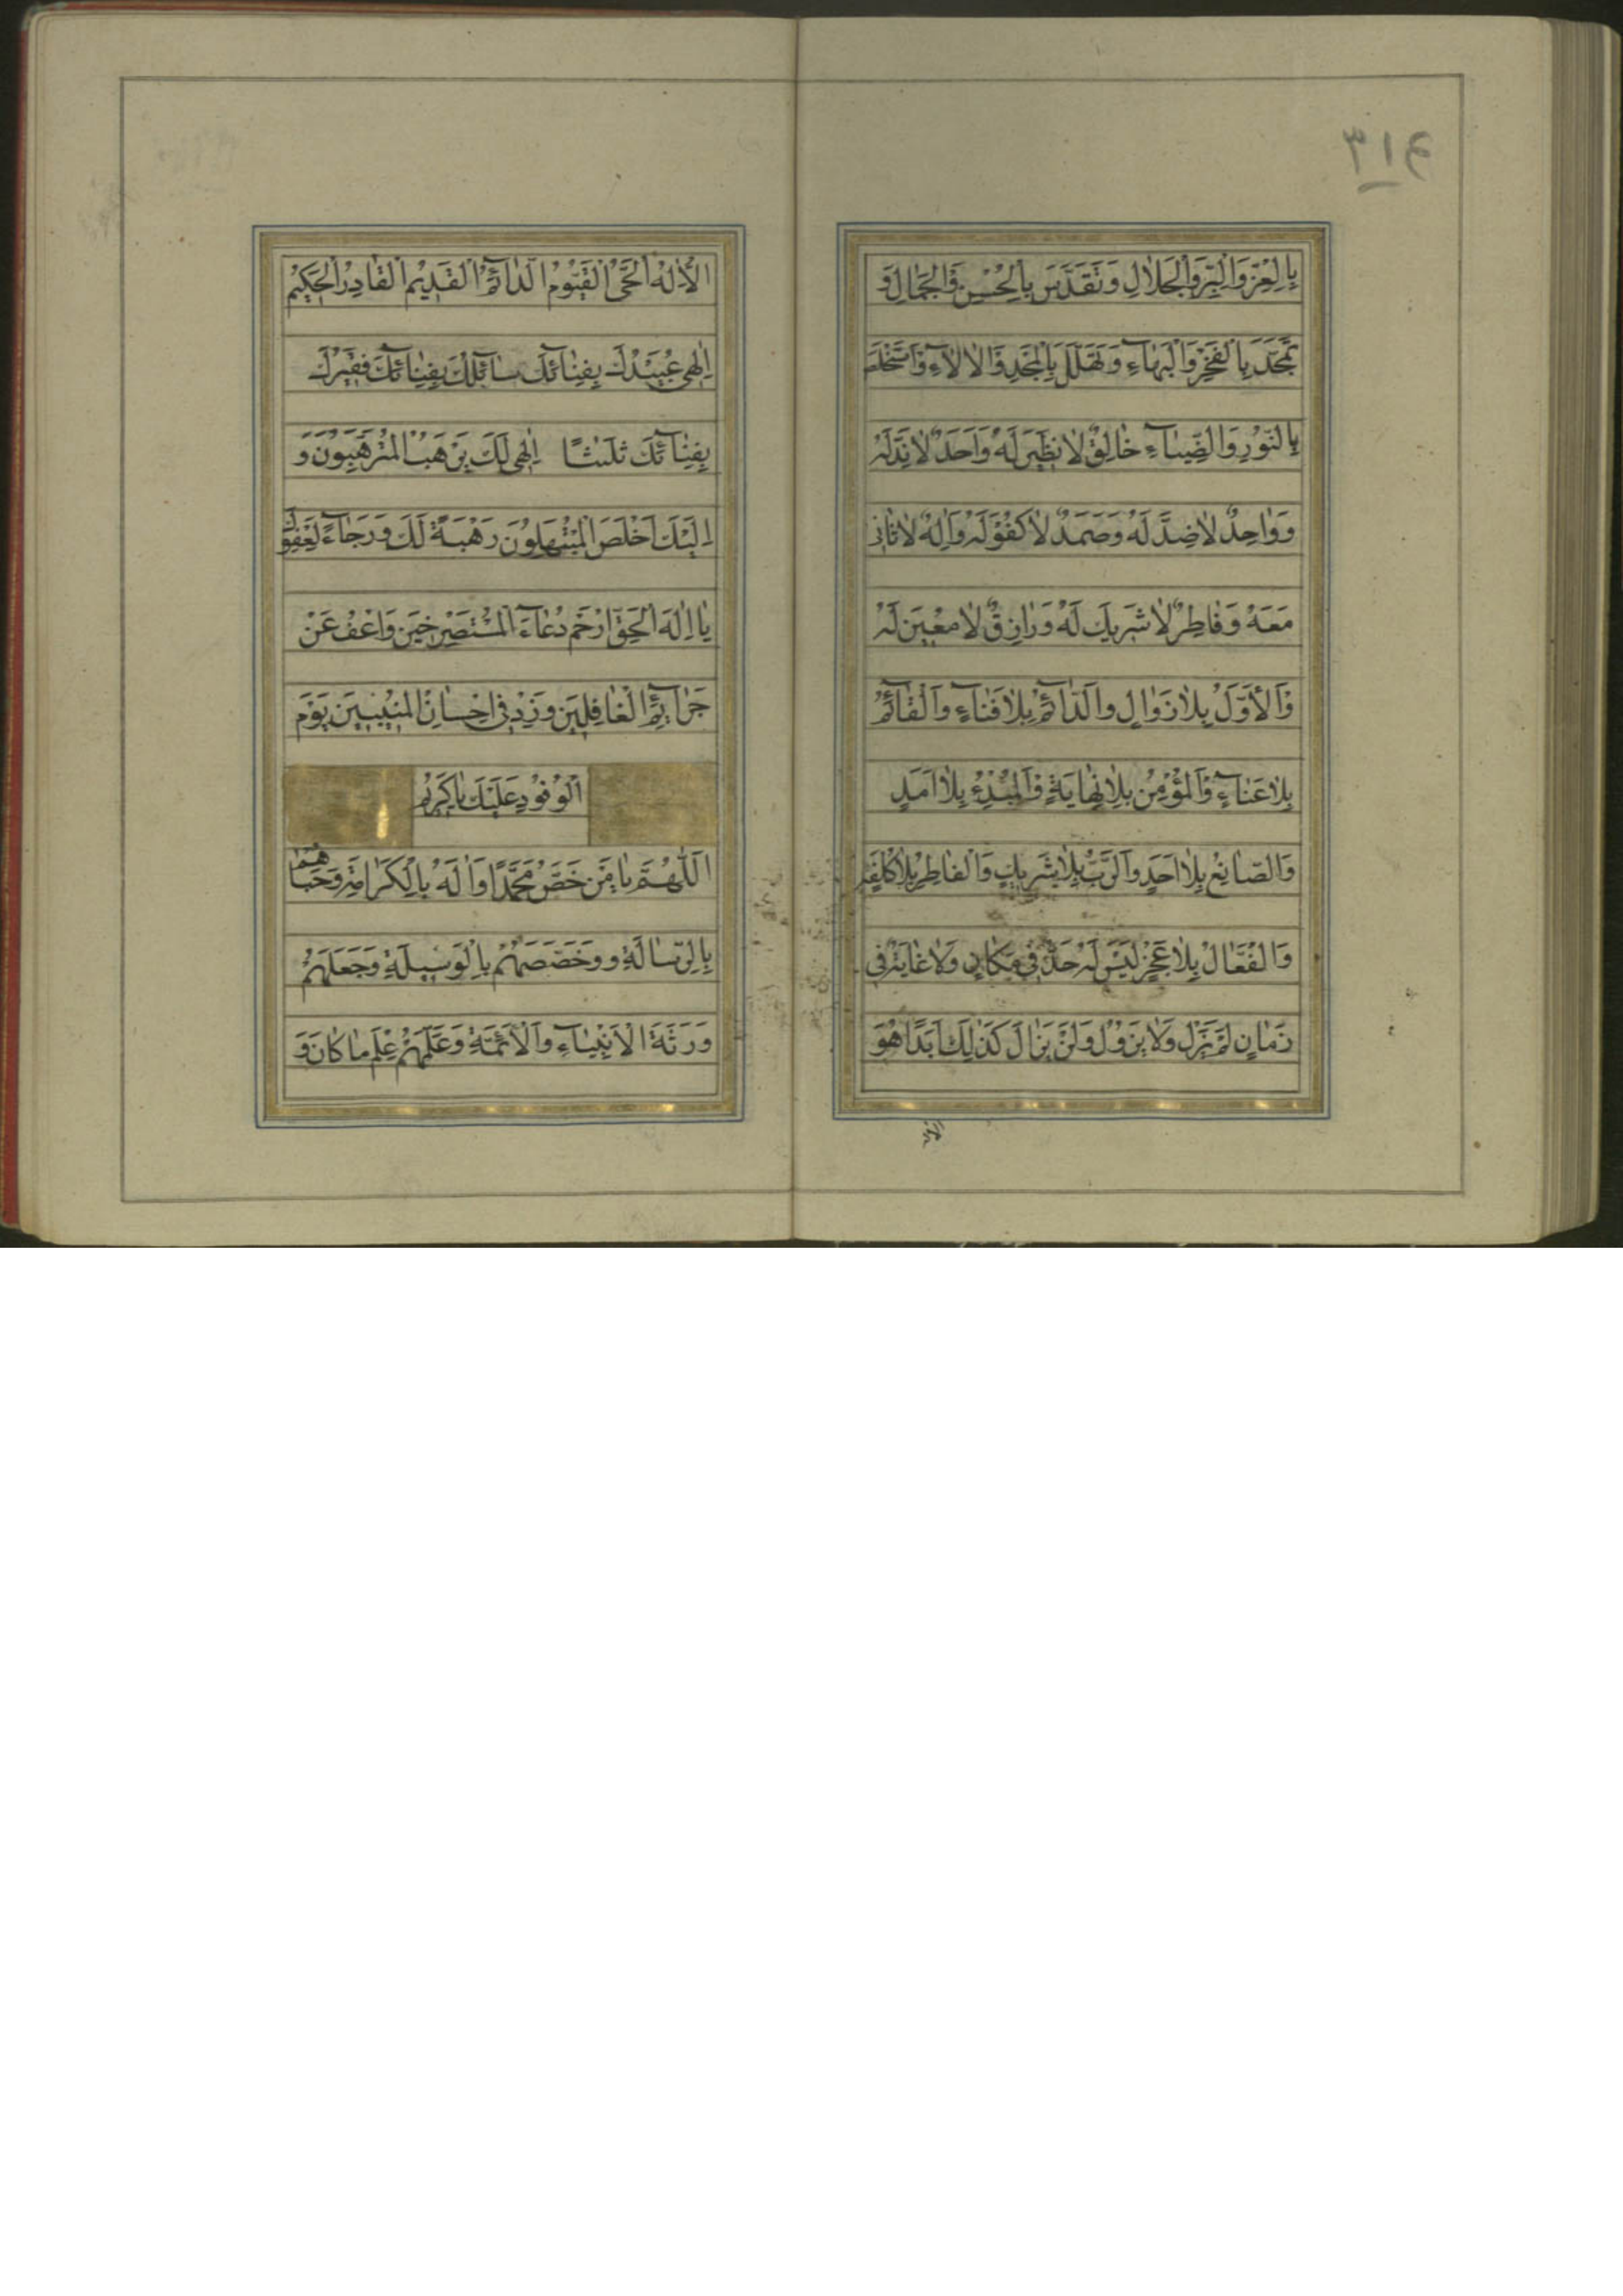 بِالْعِزِّ وَالْبِرِّ وَالْجَلَالِ وَتَقَدَّسَ بِالْحُسْنِ وَالْجَمَالِ وَ
تَمَجَّدَ بِالْفَخْرِ وَالْبَهَاءِ وَتَهَلَّلَ بِالْمَجْدِ وَالْآلَاءِ وَاسْتَخْلَصَ
بِالنُّورِ وَالضِّيَاءِ خَالِقٌ لَا نَظِيرَ لَهُ وَاَحَدٌ لَا نِدَّ لَهُ
وَوَاحِدٌ لَا ضِدَّ لَهُ وَصَمَدٌ لَا كُفُوَ لَهُ وَاِلٰهٌ لَا ثَانِيَ
مَعَهُ وَفَاطِرٌ لَا شَرِيكَ لَهُ وَرَازِقٌ لَا مُعِينَ لَهُ
وَالْاَوَّلُ بِلَا زَوَالٍ وَالدَّآئِمُ بِلَا فَنَاءٍ وَالْقَآئِمُ
بِلَا عَنَآءٍ وَالْمُؤْمِنُ بِلَا نِهَايَةٍ وَالْمُبْدِئُ بِلَا اَمَدٍ
وَالصَّانِعُ بِلَا اَحَدٍ وَالرَّبُّ بِلَا شَرِيكٍ وَالْفَاطِرُ بِلَا كُلْفَةٍ
وَالْفَعَّالُ بِلَا عَجْزٍ لَيْسَ لَهُ حَدٌّ فِي مَكَانٍ وَلَا غَايَةٌ فِي
زَمَانٍ لَمْ يَزَلْ وَلَا يَزُولُ وَلَنْ يَزَالَ كَذٰلِكَ اَبَدًا هُوَ
الْاِلٰهُ الْحَيُّ الْقَيُّومُ الدَّآئِمُ الْقَدِيمُ الْقَادِرُ الْحَكِيمُ
اِلٰهِي عُبَيْدُكَ بِفِنَآئِكَ سَآئِلُكَ بِفِنَآئِكَ فَقِيرُكَ
بِفِنَآئِكَ ثلٰثًا اِلٰهِي لَكَ يَرْهَبُ الْمُتَرَهِّبُونَ وَ
اِلَيْكَ اَخْلَصَ الْمُبْتَهِلُونَ رَهْبَةً لَكَ وَرَجَآءً لِعَفْوِكَ
يَا اِلٰهَ الْحَقِّ ارْحَمْ دُعَآءَ الْمُسْتَصْرِخِينَ وَاعْفُ عَنْ
جَرَآئِمِ الْغَافِلِينَ وَزِدْ فِي اِحْسَانِ الْمُنِيبِينَ يَوْمَ
الْوُفُودِ عَلَيْكَ يَا كَرِيمُ
اَللّٰهُمَّ يَا مَنْ خَصَّ مُحَمَّدًا وَاٰلَهُ بِالْكَرَامَةِ وَحَبَاهُمْ
بِالرِّسَالَةِ وَ وَخَصَّصَهُمْ بِالْوَسِيلَةِ وَجَعَلَهُمْ
وَرَثَةَ الْاَنْبِيَاءِ وَالْاَئِمَّةِ وَعَلَّمَهُمْ عِلْمَ مَا كَانَ وَ